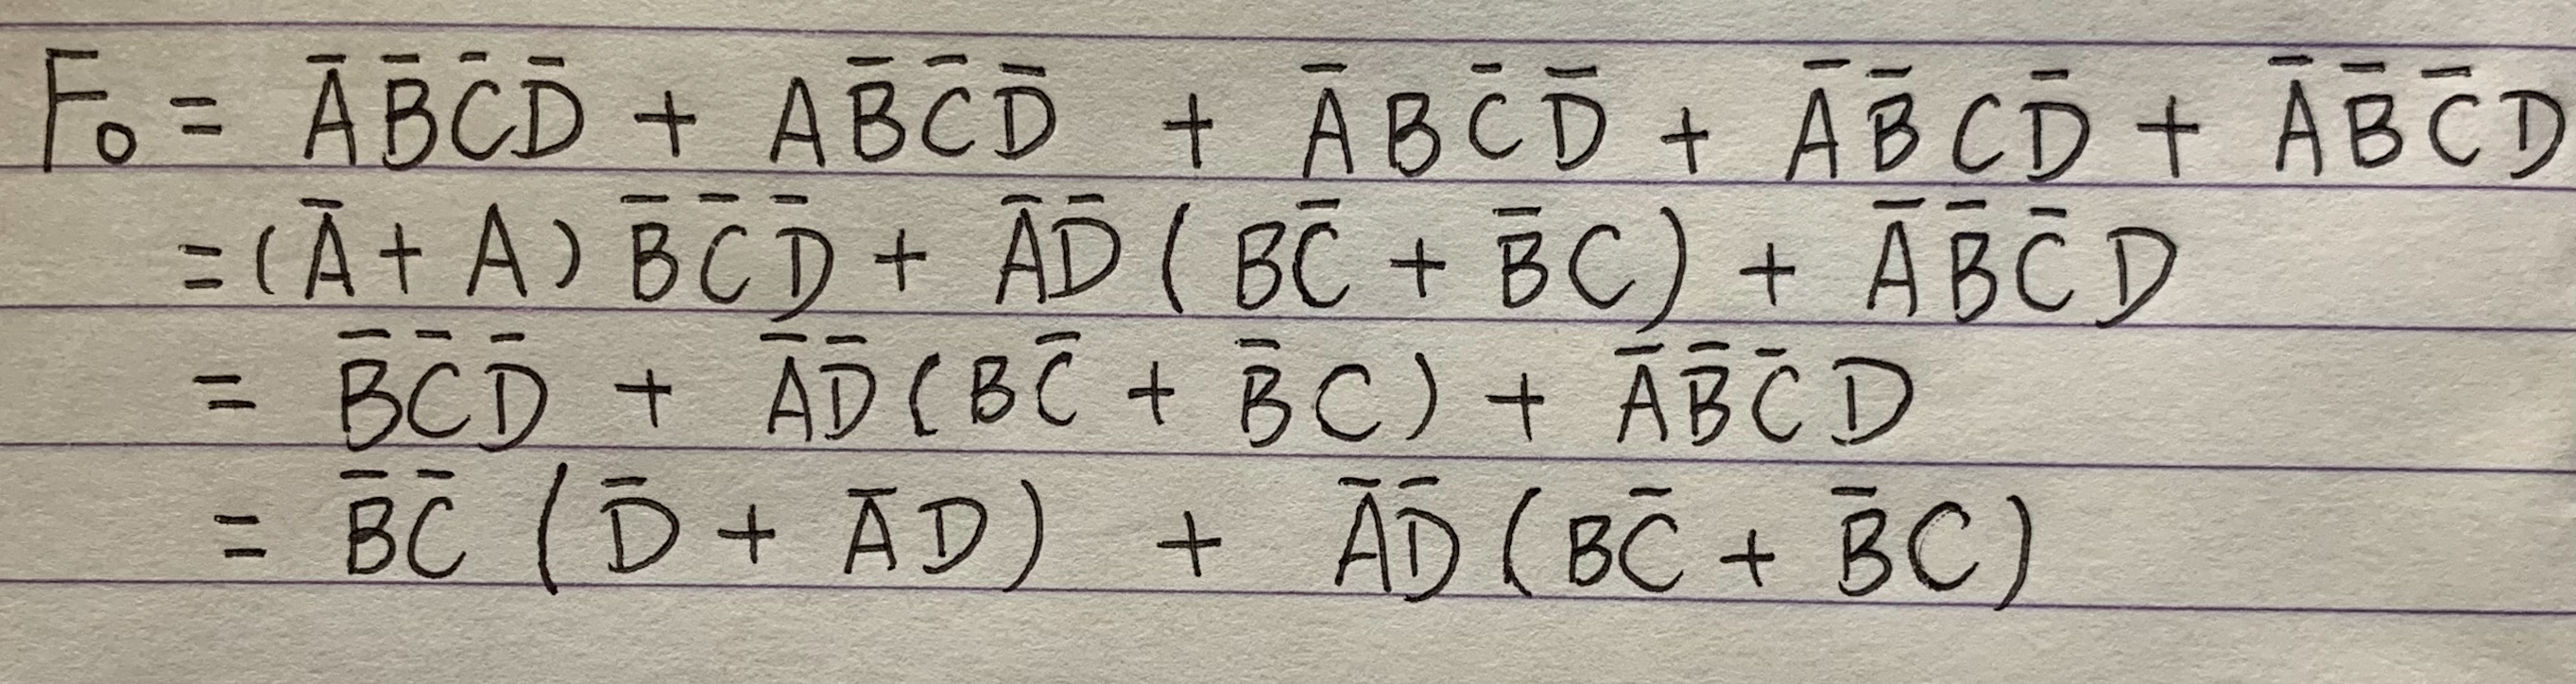 F₀ = A̅ B̅ C̅ D̅ + A B̅ C̅ D̅ + A̅ B C̅ D̅ + A̅ B̅ C D̅ + A̅ B̅ C̅ D
= (A̅ + A) B̅ C̅ D̅ + A̅ D̅ ( B C̅ + B̅ C ) + A̅ B̅ C̅ D
= B̅ C̅ D̅ + A̅ D̅ ( B C̅ + B̅ C ) + A̅ B̅ C̅ D
= B̅ C̅ ( D̅ + A̅ D ) + A̅ D̅ ( B C̅ + B̅ C )